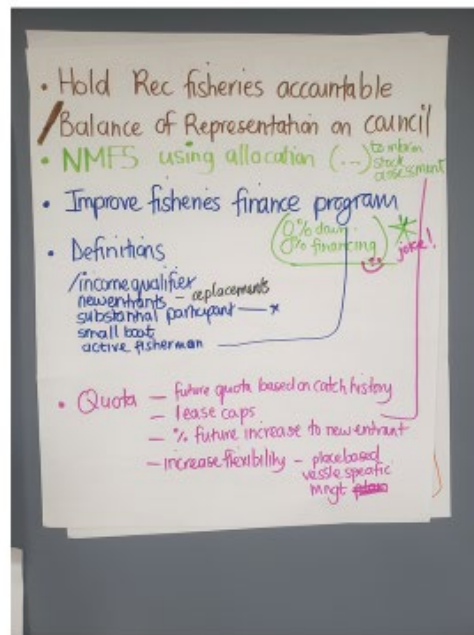 • Hold Rec fisheries accountable
/Balance of Representation on council
• NMFS using allocation (...) to inform
stock
assessment
• Improve fisheries finance program
(0% down
0% financing)
joke!
• Definitions
/income qualifier
new entrants - replacements
substantial participant — x
small boat
active fisherman
• Quota — future quota based on catch history
— lease caps
— % future increase to new entrant
— increase flexibility — place based
vessle specific
mngt plan